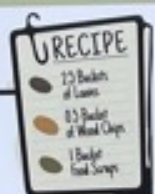 RECIPE
2.5 Buckets
of Leaves
0.5 Bucket
of Wood Chips
1 Bucket
Food Scraps